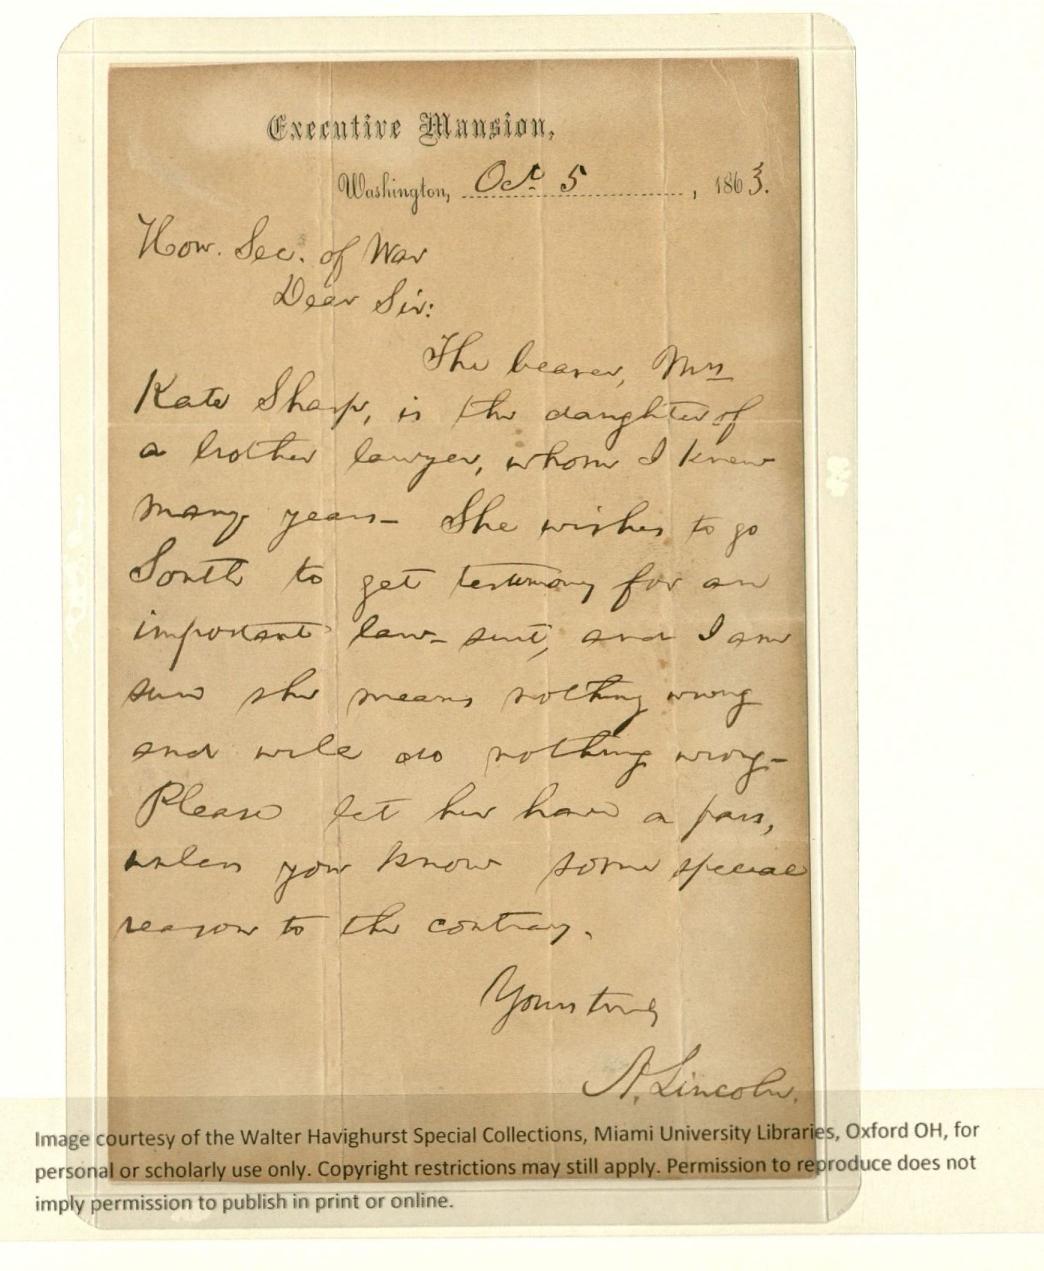 Executive Mansion,
Washington, Oct. 5, 1863.
Hon. Sec. of War
Dear Sir:
The bearer, Mrs
Kate Sharp, is the daughter of
a brother lawyer, whom I knew
many years— She wishes to go
South to get testimony for an
important law-suit, and I am
sure she means nothing wrong
and will do nothing wrong—
Please let her have a pass,
unless you know some special
reason to the contrary.
Yours truly
A. Lincoln.
Image courtesy of the Walter Havighurst Special Collections, Miami University Libraries, Oxford OH, for
personal or scholarly use only. Copyright restrictions may still apply. Permission to reproduce does not
imply permission to publish in print or online.